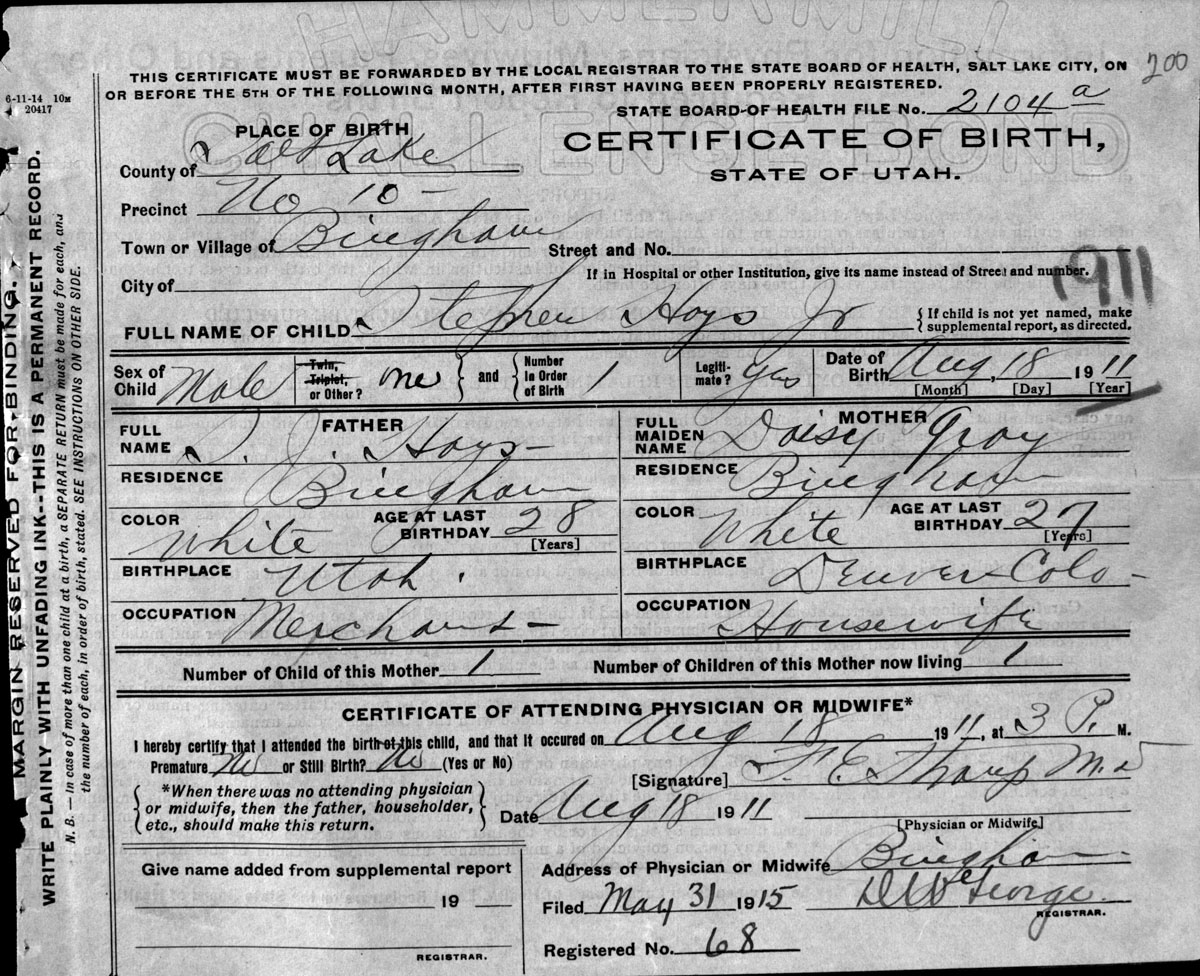 HAMMERMILL
200
THIS CERTIFICATE MUST BE FORWARDED BY THE LOCAL REGISTRAR TO THE STATE BOARD OF HEALTH, SALT LAKE CITY, ON
OR BEFORE THE 5TH OF THE FOLLOWING MONTH, AFTER FIRST HAVING BEEN PROPERLY REGISTERED.
6-11-14 10M
20417
STATE BOARD OF HEALTH FILE No. 2104 a
PLACE OF BIRTH
CERTIFICATE OF BIRTH,
STATE OF UTAH.
County of Salt Lake
Precinct No 10 -
Town or Village of Bingham Street and No.
If in Hospital or other Institution, give its name instead of Street and number.
City of
1911
FULL NAME OF CHILD Stephen Hays Jr { If child is not yet named, make
supplemental report, as directed.
Sex of Child Male Twin, Triplet, or Other? one } and { Number in Order of Birth 1 Legiti-mate? yes Date of Birth Aug, 18 1911
[Month] [Day] [Year]
FATHER
FULL NAME S. J. Hays-
RESIDENCE Bingham
COLOR White AGE AT LAST BIRTHDAY 28 [Years]
BIRTHPLACE Utah.
OCCUPATION Merchant-
MOTHER
FULL MAIDEN NAME Daisy Gray
RESIDENCE Bingham
COLOR White AGE AT LAST BIRTHDAY 27 [Years]
BIRTHPLACE Denver Colo-
OCCUPATION Housewife
Number of Child of this Mother 1 Number of Children of this Mother now living 1
CERTIFICATE OF ATTENDING PHYSICIAN OR MIDWIFE*
I hereby certify that I attended the birth of this child, and that it occured on Aug 18 1911, at 3 P. M.
Premature No or Still Birth? No (Yes or No)
[Signature] F. E. Tharp M.D
{ *When there was no attending physician
or midwife, then the father, householder,
etc., should make this return. }
Date Aug 18 1911
[Physician or Midwife]
Give name added from supplemental report
19
REGISTRAR.
Address of Physician or Midwife Bingham
Filed May 31 1915 George
REGISTRAR.
Registered No. 68
MARGIN RESERVED FOR BINDING.
WRITE PLAINLY WITH UNFADING INK--THIS IS A PERMANENT RECORD.
N. B. — In case of more than one child at a birth, a SEPARATE RETURN must be made for each, and
the number of each, in order of birth, stated. SEE INSTRUCTIONS ON OTHER SIDE.